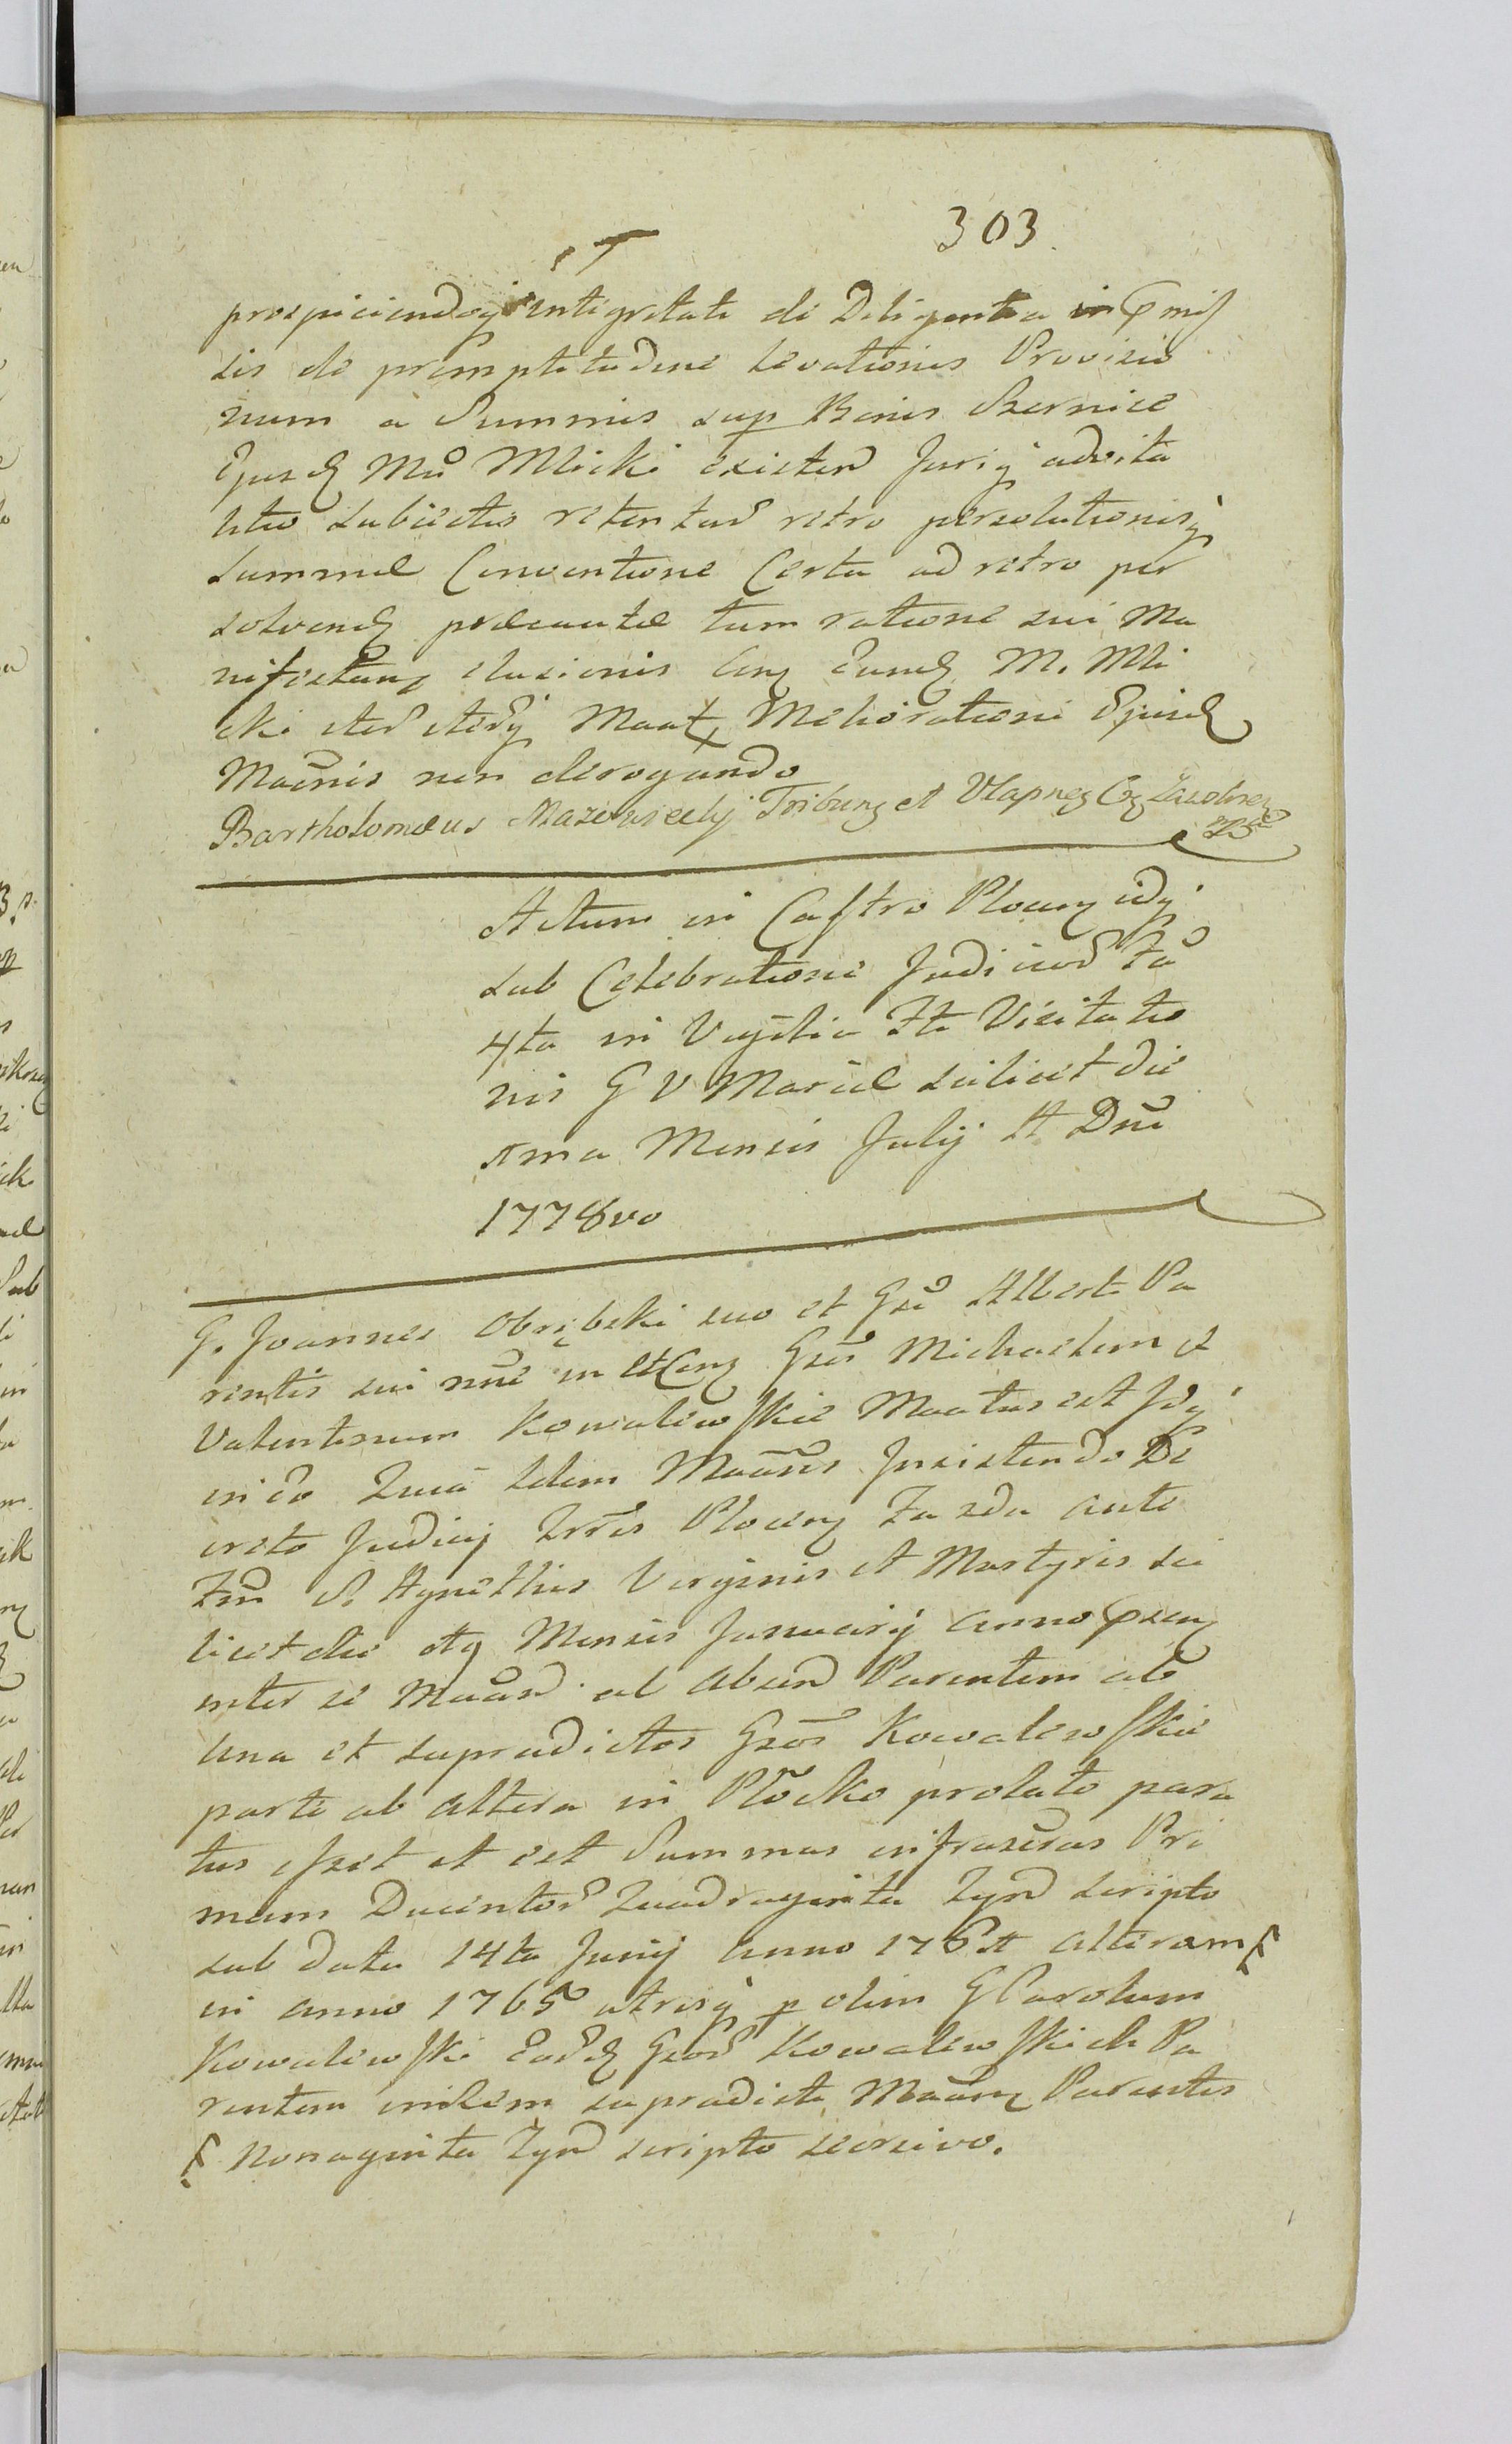 303.
prospiciendoq integritati de Diligentia in Pmis
sis de promptitudine levationis Provisio
num a Summis sup Bonis Bernice
Ejusd Mci Mlicki existen Jurig advita
litio subiectis reten tar retro persolutionisq
Summae Conventione Certa ad retro per
solvend praecautae tum ratione sui Ma
nifestang elusionis Cong Eund M. Mli
cki iter iterq Maat, Meliorationi Ejusd
Maonis non derogando
Bartholomaeus Mazowiecky Tribung et Vlapneg Cg
Actum in Castro Plocen idq
sub Celebratione Judicior Fa
4ta in Vigilia Fti Visitatio
nis G V Mariae scilicet die
1ma Mensis Julij A Dni
1778vo
G. Joannes Obrębski suo et Gsi Alberti Pa
rentis sui nne in et Cong Gsos Michaelem et
Valentinum Kowalewskie Maatus est Idq
in eo Quia Idem Maans Insistendo De
creto Judicij Trris Plocen Fa 2da ante
Fm S. Agnethis Virginis et Martyris sci
licet die 19 Mensis Januarij anno Psen
inter se Maan et Absen Parentem ab
una et supradictos Gsos Kowalewskie
parte ab altera in Płocko prolato para
tus esset et est Summas infrascras Pri
mam Ducentor Quadraginta Tyn scripto
sub data 14ta Junij anno 1761 alteram
in anno 1765 utrisq p olim G Carolum
Kowalewski Eord Gsor Kowalewskich Pa
rentem inibem supradicti Maang Parentis
Nonaginta Tyn scripto seorsivo.